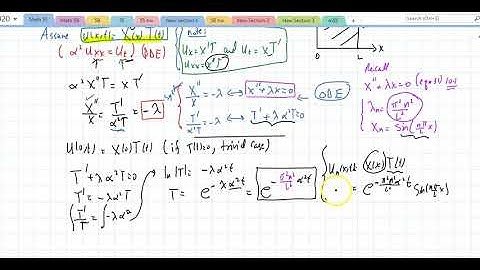 Math 55
Math 56
58
55 inv
New Section 2
New Section 3
New Section 1
m32
Assume u(x,t) = X(x)T(t)
(α² Uxx = Ut) (PDE)
note:
Ux = X'T and Ut = XT'
Uxx = X''T
0 L x
α² X''T = X T'
X''/X = T'/α²T = -λ
X''/X = -λ ⟷ X'' + λX = 0
T'/α²T = -λ ⟷ T' + λα²T = 0
ODE
Recall
X'' + λX = 0
λn = π²n²/L²
Xn = Sin(nπ/L x)
U(0,t) = X(0)T(t) (if T(t)=0, trivial case)
T' + λα²T = 0
T' = -λα²T
∫T'/T = ∫-λα²
ln|T| = -λα²t
T = e^(-λα²t) = e^(-π²n²/L² α²t)
Un(x,t) = X(x)T(t)
= e^(-π²n²α²t/L²) Sin(nπ/L x)